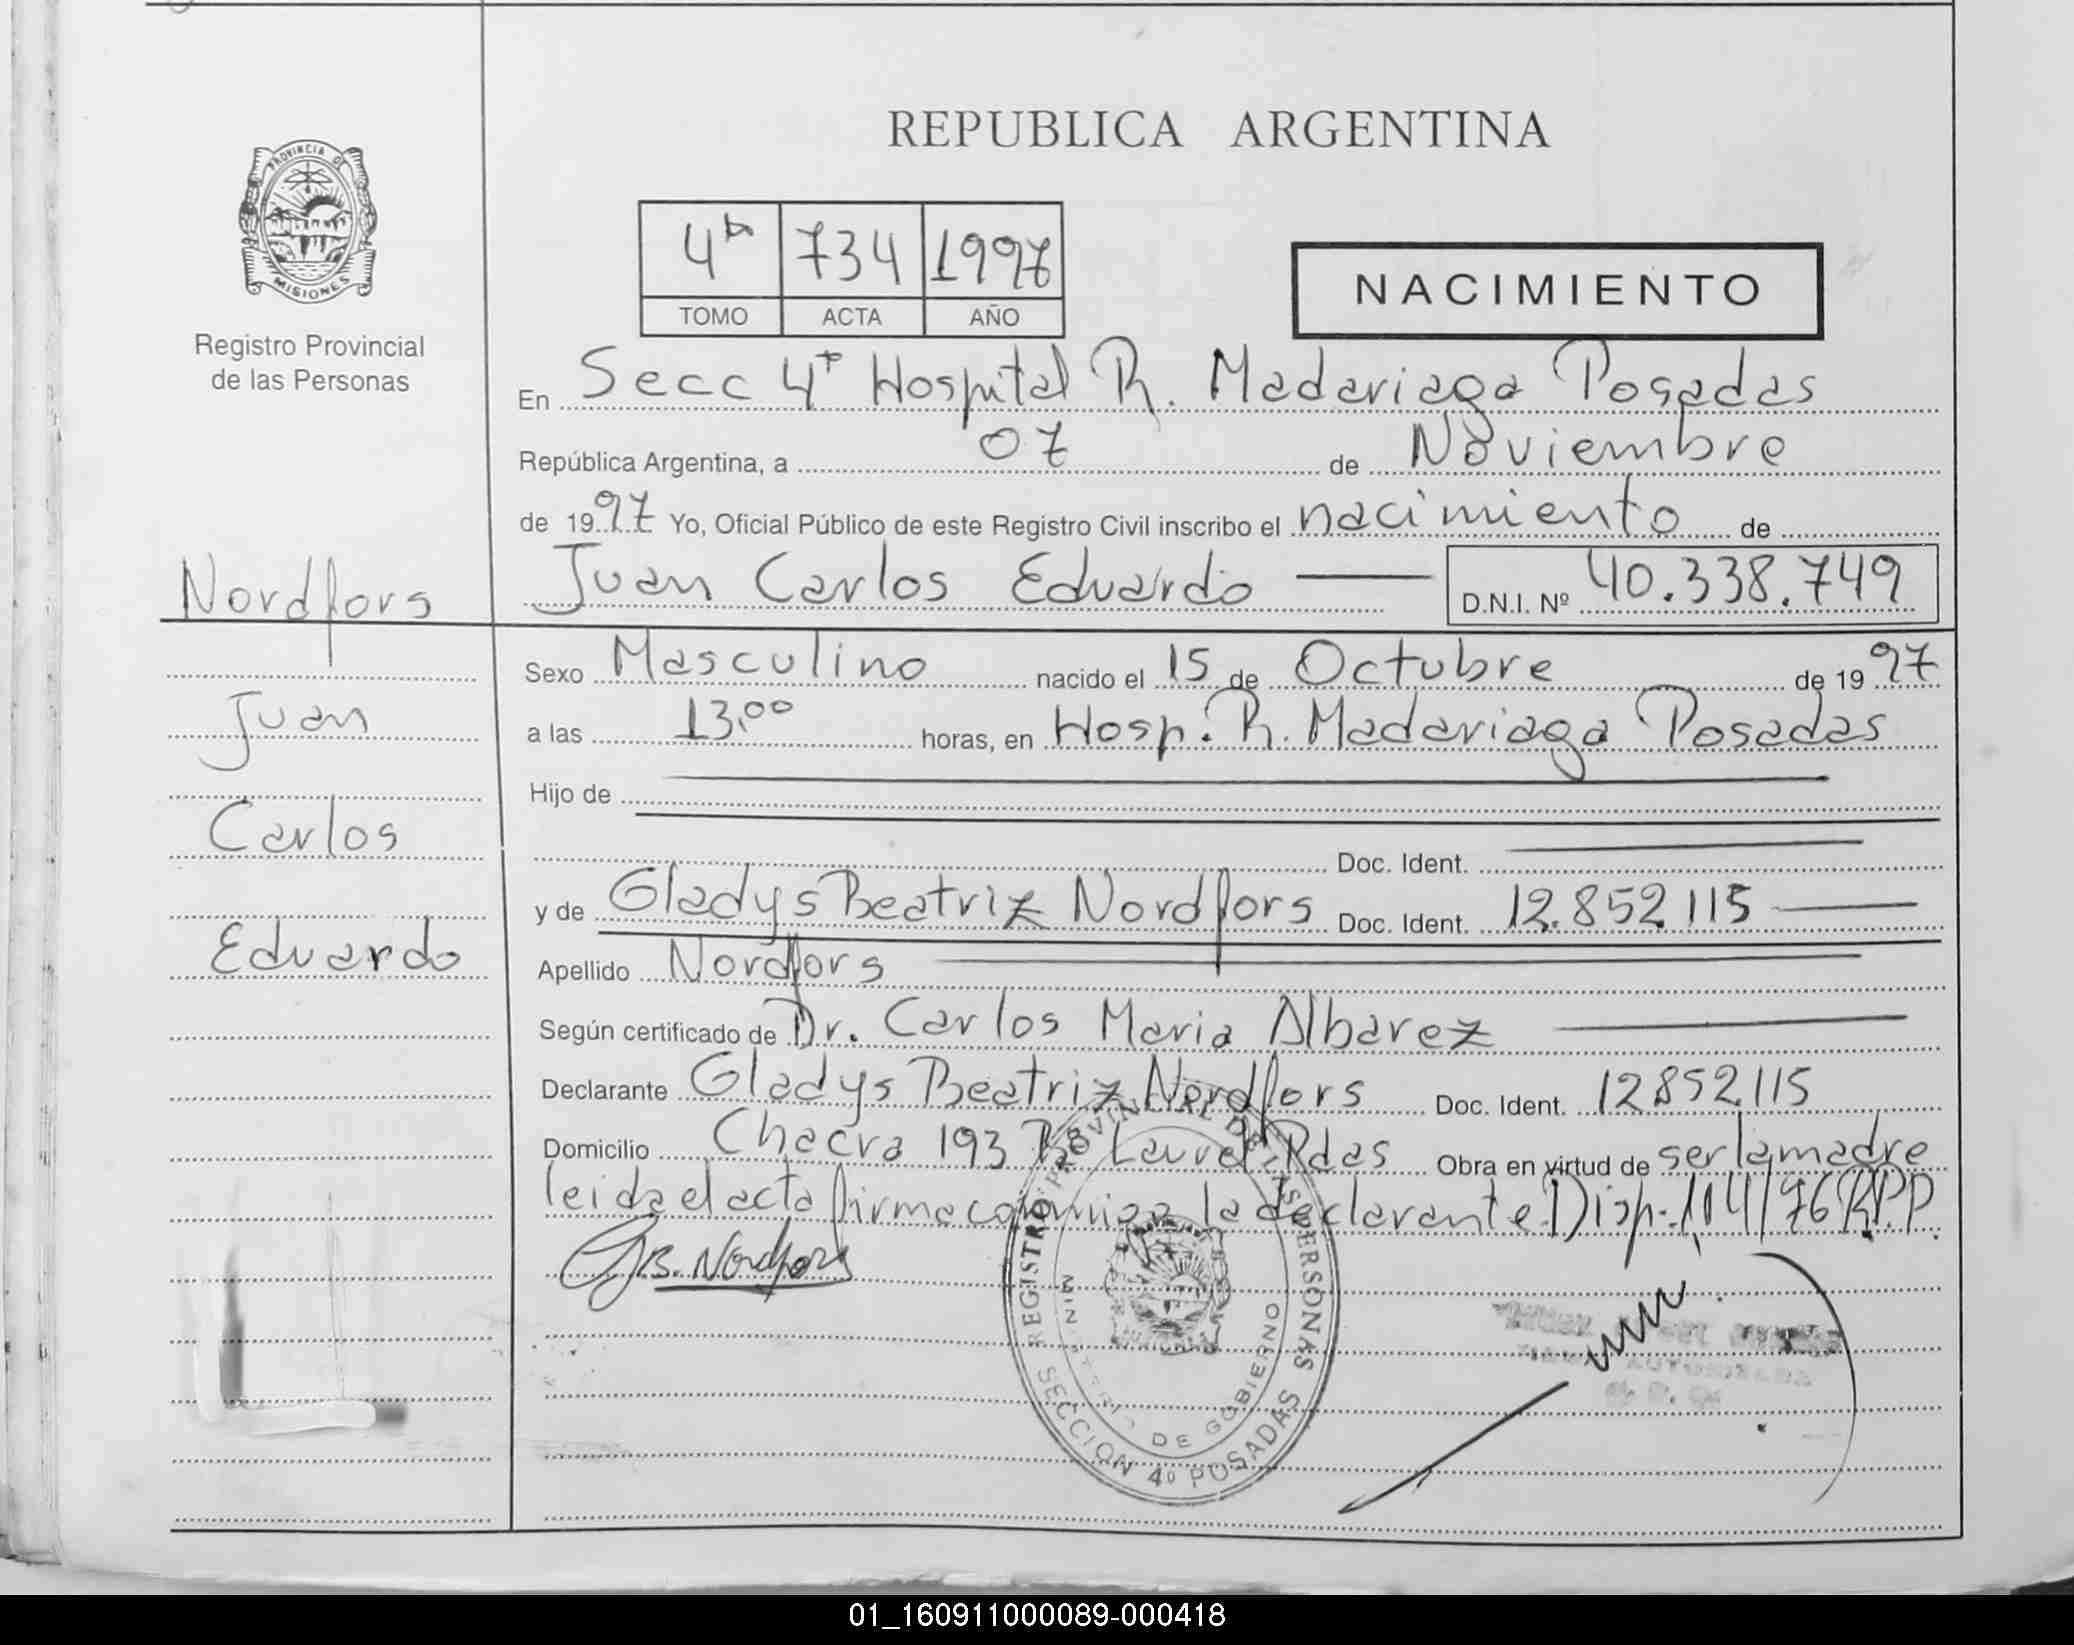 REPUBLICA ARGENTINA
PROVINCIA DE
MISIONES
Registro Provincial
de las Personas
4º 734 1997
TOMO ACTA AÑO
NACIMIENTO
En Secc 4º Hospital R. Madariaga Posadas
República Argentina, a 07 de Noviembre
de 1997 Yo, Oficial Público de este Registro Civil inscribo el nacimiento de
Juan Carlos Eduardo D.N.I. Nº 40.338.749
Nordfors
Juan
Carlos
Eduardo
Sexo Masculino nacido el 15 de Octubre de 1997
a las 13,00 horas, en Hosp. R. Madariaga Posadas
Hijo de
Doc. Ident.
y de Gladys Beatriz Nordfors Doc. Ident. 12.852.115
Apellido Nordfors
Según certificado de Dr. Carlos Maria Albarez
Declarante Gladys Beatriz Nordfors Doc. Ident. 12852.115
Domicilio Chacra 193 Bº Laurel Pdas Obra en virtud de ser la madre
leida el acta firma conmigo la declarante. Disp. 104/76 R.P.P.
G B. Nordfors
REGISTRO PROVINCIAL DE LAS PERSONAS
MINISTERIO DE GOBIERNO
SECCION 4º POSADAS
01_160911000089-000418